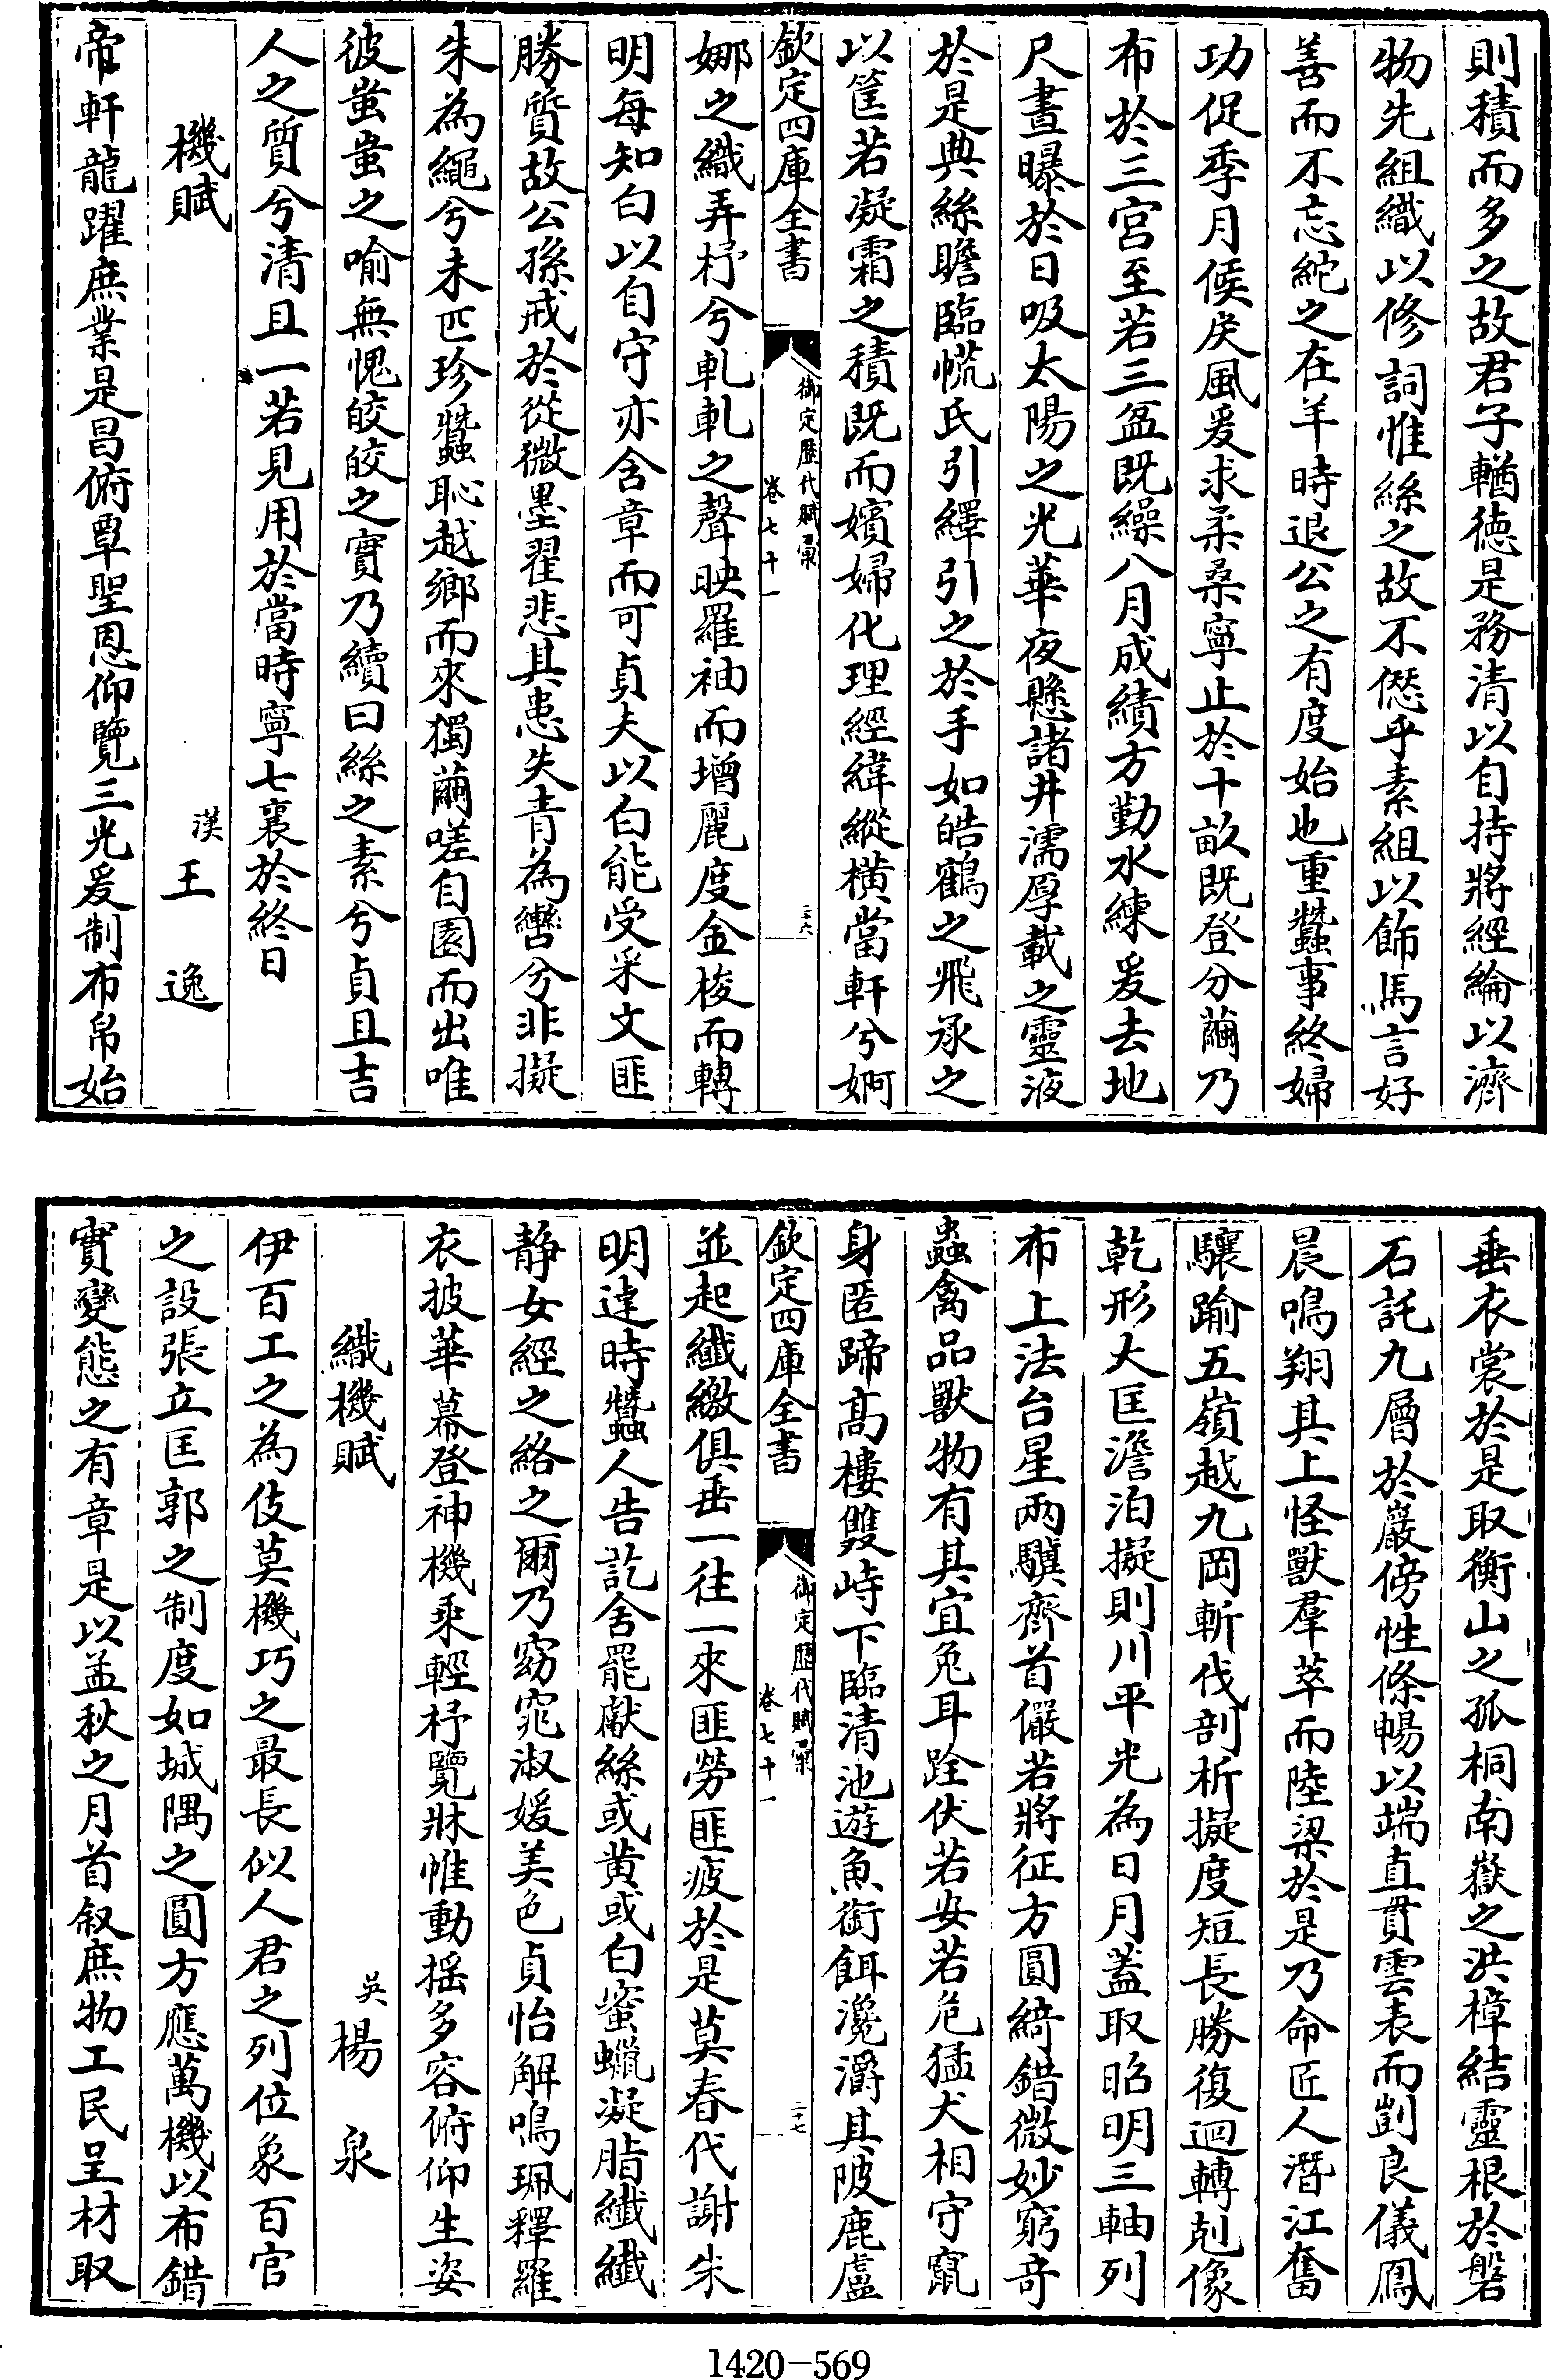 則積而多之故君子輶德是務清以自持將經綸以濟
物先組織以修詞惟絲之故不愆乎素組以飾馬言好
善而不忘紽之在羊時退公之有度始也重蠶事終婦
功促季月候戾風爰求柔桑寧止於十畝既登分繭乃
布於三宮至若三盆既繰八月成績方勤水練爰去地
尺晝曝於日吸太陽之光華夜懸諸井濡厚載之靈液
於是典絲瞻臨㡛氏引繹引之於手如皓鶴之飛承之
以筐若凝霜之積既而嬪婦化理經緯縱橫當軒兮婀
欽定四庫全書 御定歷代賦彙 卷七十一 二十六
娜之織弄杼兮軋軋之聲映羅袖而增麗度金梭而轉
明每知白以自守亦含章而可貞夫以白能受采文匪
勝質故公孫戒於從微墨翟悲其患失青為轡兮非擬
朱為繩兮未匹珍蠶恥越鄉而來獨繭嗟自園而出唯
彼蚩蚩之喻無愧皎皎之實乃續曰絲之素兮貞且吉
人之質兮清且一若見用於當時寧七襄於終日
機賦 漢 王逸
帝軒龍躍庶業是昌俯覃聖恩仰覽三光爰制布帛始
垂衣裳於是取衡山之孤桐南嶽之洪樟結靈根於磐
石託九層於巖傍性條暢以端直貫雲表而剴良儀鳳
晨鳴翔其上怪獸羣萃而陸梁於是乃命匠人潛江奮
驤踰五嶺越九岡斬伐剖析擬度短長勝復迴轉剋像
乾形大匡澹泊擬則川平光為日月蓋取昭明三軸列
布上法台星兩驥齊首儼若將征方圓綺錯微妙窮奇
蟲禽品獸物有其宜兔耳跧伏若安若危猛犬相守竄
身匿蹄高樓雙峙下臨清池遊魚銜餌瀺灂其陂鹿盧
欽定四庫全書 御定歷代賦彙 卷七十一 二十七
並起纖繳俱垂一往一來匪勞匪疲於是莫春代謝朱
明達時蠶人告訖舍罷獻絲或黃或白蜜蠟凝脂纖纖
靜女經之絡之爾乃窈窕淑媛美色貞怡解鳴珮釋羅
衣披華幕登神機乘輕杼覽牀帷動搖多容俯仰生姿
織機賦 吳 楊泉
伊百工之為伎莫機巧之最長似人君之列位象百官
之設張立匡郭之制度如城隅之圓方應萬機以布錯
實變態之有章是以孟秋之月首叙庶物工民呈材取
1420-569